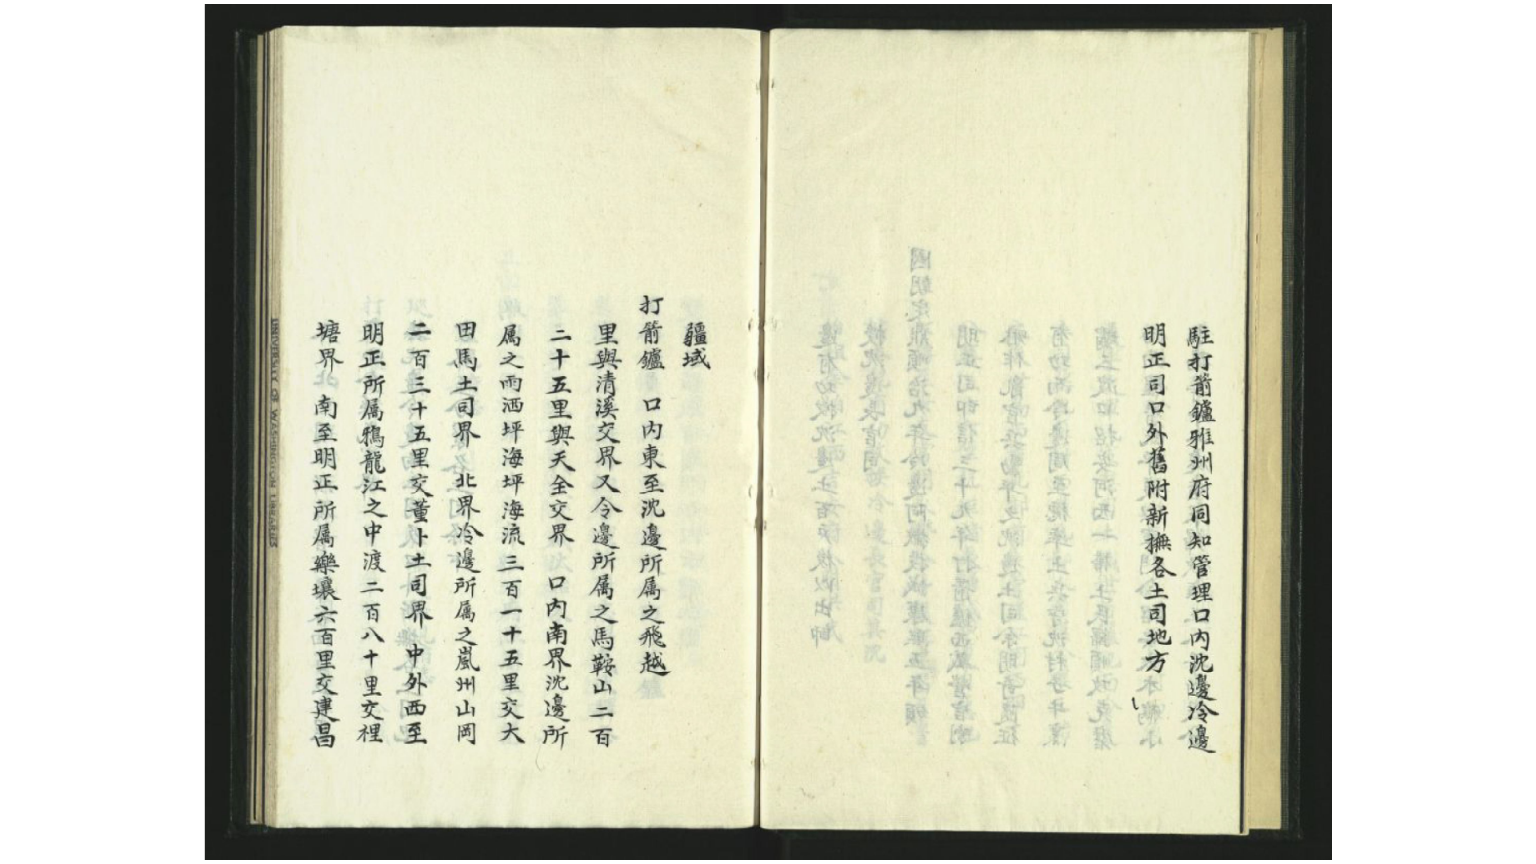 駐打箭鑪雅州府同知管理口内沈邊冷邊
明正司口外舊附新撫各土司地方
疆域
打箭鑪 口内東至沈邊所属之飛越
里與清溪交界又令邊所属之馬鞍山二百
二十五里與天全交界 口内南界沈邊所
属之雨洒坪海坪海流三百一十五里交大
田馬土司界 北界冷邊所属之嵐州山岡
二百三十五里交董卜土司界 中外西至
明正所属鴉龍江之中渡二百八十里交裡
塘界 南至明正所属樂壤六百里交建昌